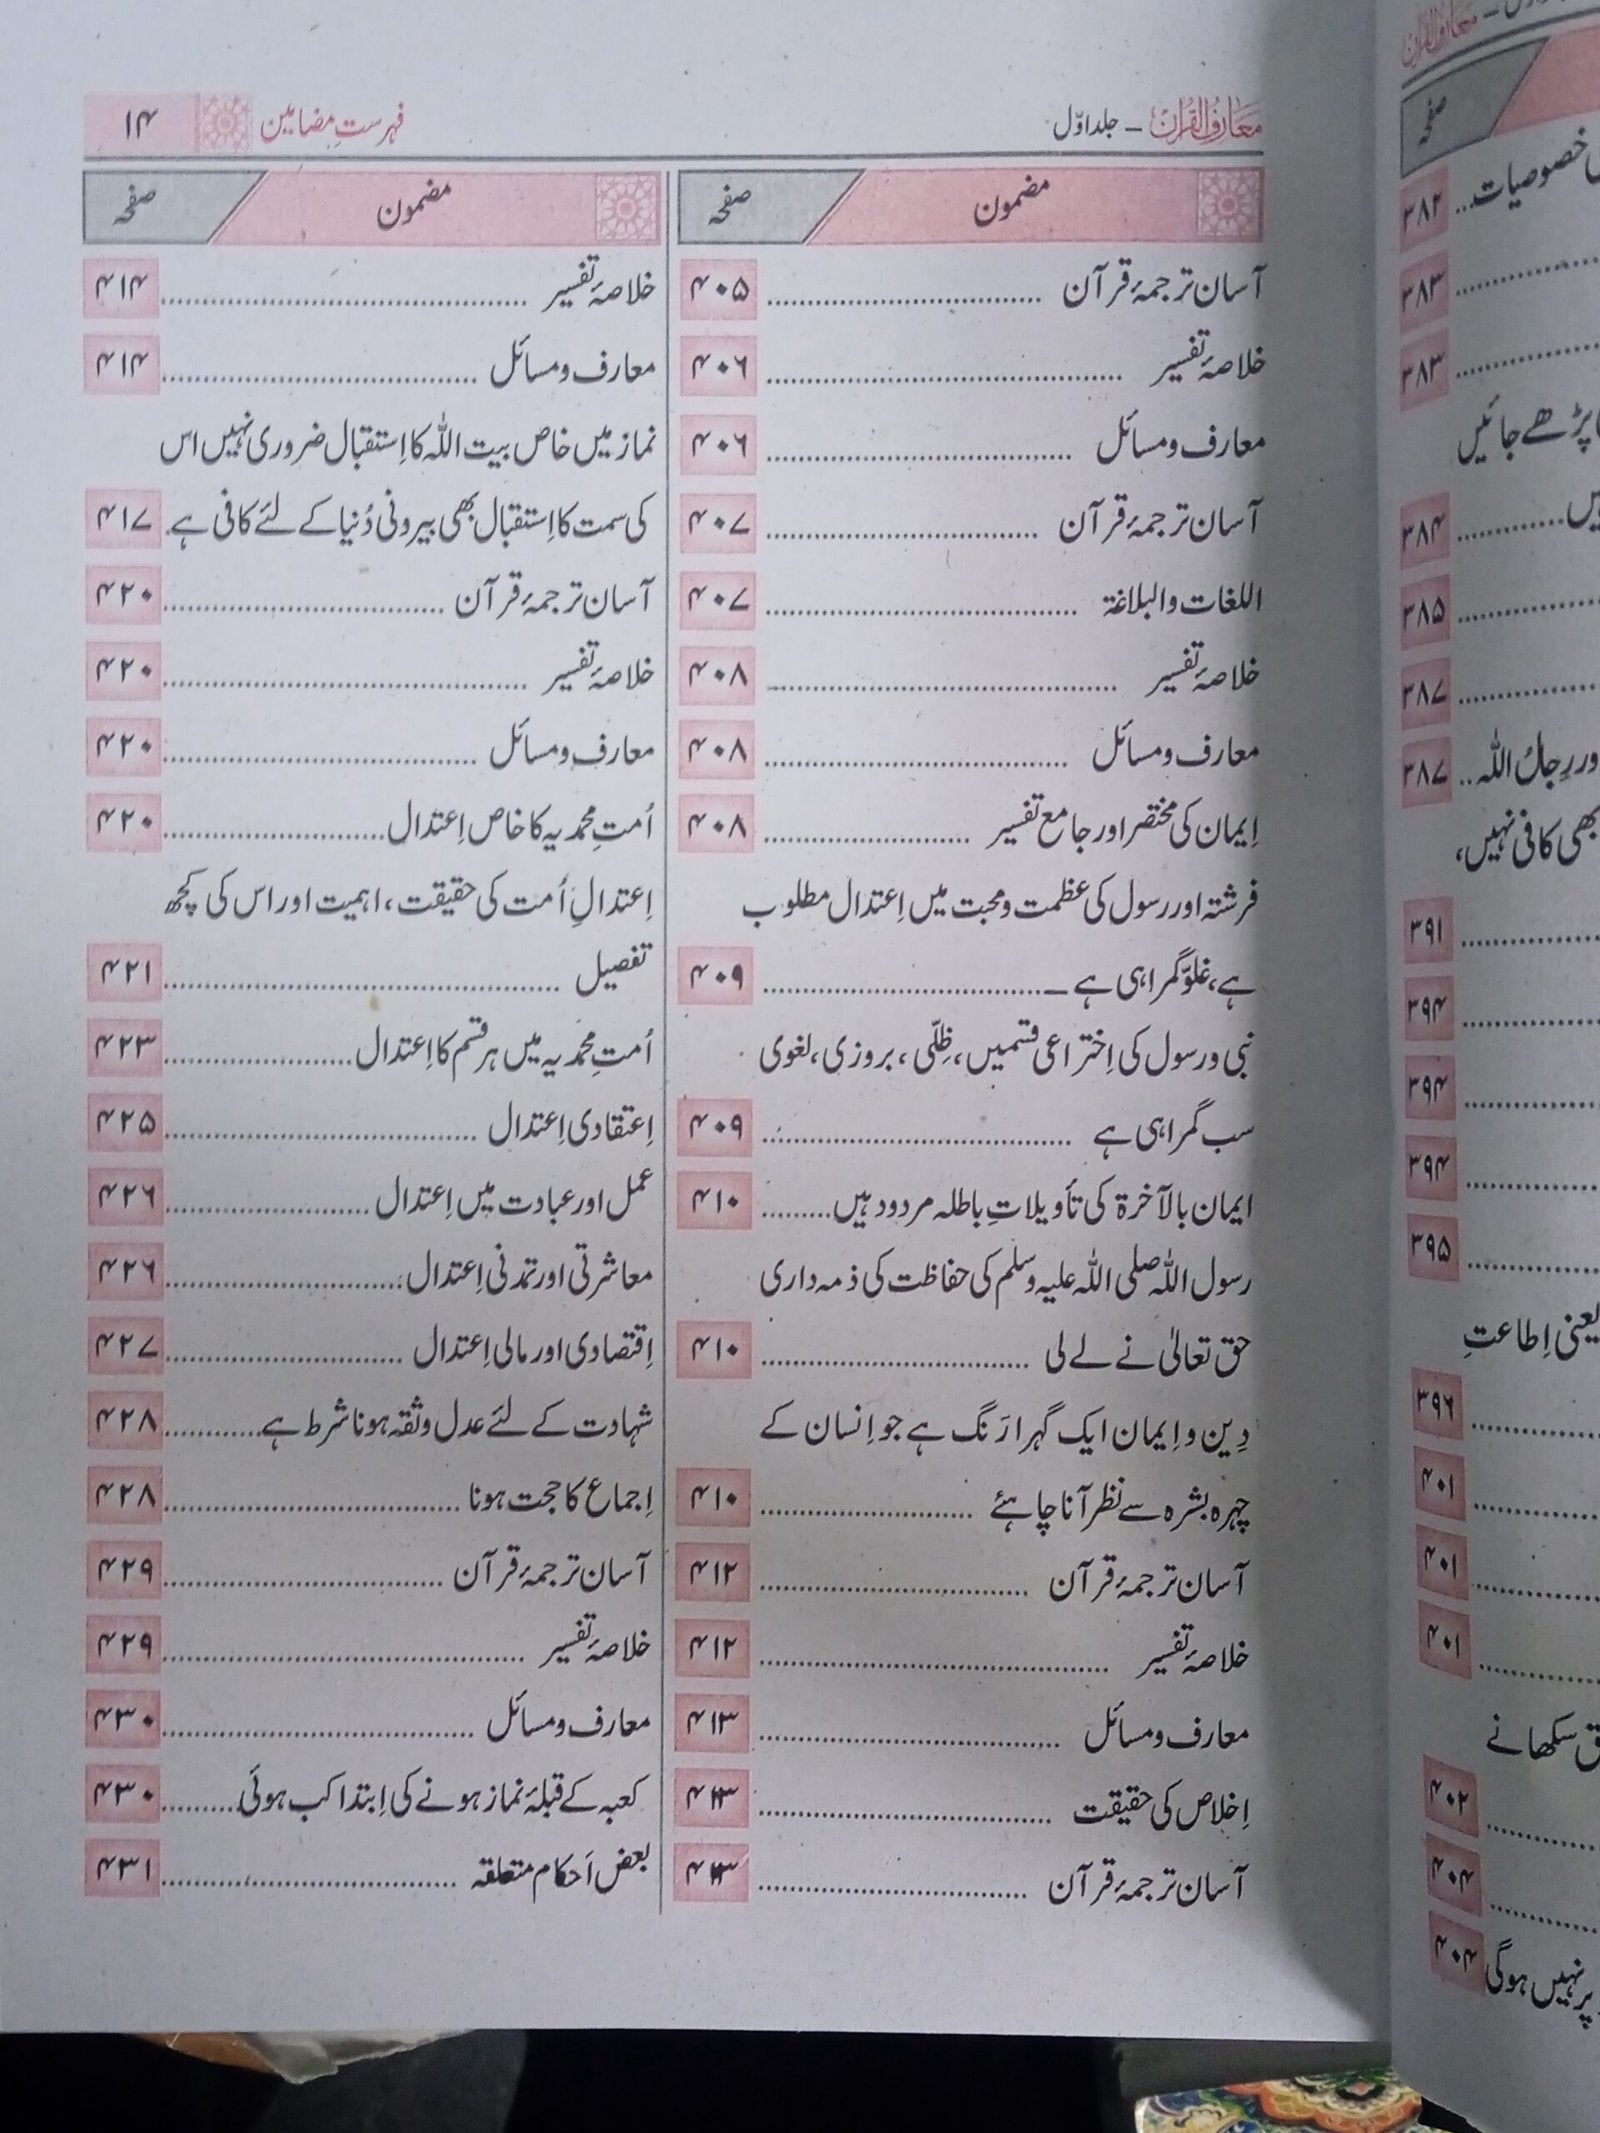 معارف القرآن – جلد اوّل
فہرستِ مضامین
۱۴
مضمون صفحہ
آسان ترجمۂ قرآن ۴۰۵
خلاصۂ تفسیر ۴۰۶
معارف و مسائل ۴۰۶
آسان ترجمۂ قرآن ۴۰۷
اللغات والبلاغۃ ۴۰۷
خلاصۂ تفسیر ۴۰۸
معارف و مسائل ۴۰۸
اِیمان کی مختصر اور جامع تفسیر ۴۰۸
فرشتہ اور رسول کی عظمت و محبت میں اِعتدال مطلوب
ہے، غلوّ گمراہی ہے ۴۰۹
نبی و رسول کی اِختراعی قسمیں، ظِلّی، بروزی، لغوی
سب گمراہی ہے ۴۰۹
ایمان بالآخرۃ کی تأویلاتِ باطلہ مردود ہیں ۴۱۰
رسول اللہ صلی اللہ علیہ وسلم کی حفاظت کی ذمہ داری
حق تعالیٰ نے لے لی ۴۱۰
دِین و اِیمان ایک گہرا رَنگ ہے جو اِنسان کے
چہرہ بشرہ سے نظر آنا چاہئے ۴۱۰
آسان ترجمۂ قرآن ۴۱۲
خلاصۂ تفسیر ۴۱۲
معارف و مسائل ۴۱۳
اِخلاص کی حقیقت ۴۱۳
آسان ترجمۂ قرآن
مضمون صفحہ
خلاصۂ تفسیر ۴۱۴
معارف و مسائل ۴۱۴
نماز میں خاص بیت اللہ کا اِستقبال ضروری نہیں اس
کی سمت کا اِستقبال بھی بیرونی دُنیا کے لئے کافی ہے ۴۱۷
آسان ترجمۂ قرآن ۴۲۰
خلاصۂ تفسیر ۴۲۰
معارف و مسائل ۴۲۰
اُمتِ محمدیہ کا خاص اِعتدال ۴۲۰
اِعتدالِ اُمت کی حقیقت، اہمیت اور اس کی کچھ
تفصیل ۴۲۱
اُمتِ محمدیہ میں ہر قسم کا اِعتدال ۴۲۳
اِعتقادی اِعتدال ۴۲۵
عمل اور عبادت میں اِعتدال ۴۲۶
معاشرتی اور تمدنی اِعتدال ۴۲۶
اِقتصادی اور مالی اِعتدال ۴۲۷
شہادت کے لئے عدل و ثقہ ہونا شرط ہے ۴۲۸
اِجماع کا حجت ہونا ۴۲۸
آسان ترجمۂ قرآن ۴۲۹
خلاصۂ تفسیر ۴۲۹
معارف و مسائل ۴۳۰
کعبہ کے قبلۂ نماز ہونے کی اِبتدا کب ہوئی ۴۳۰
بعض اَحکام متعلقہ ۴۳۱
صفحہ
خصوصیات ۳۸۲
۳۸۳
۳۸۳
پڑھے جائیں
۳۸۴
۳۸۵
۳۸۷
رِجالُ اللہ ۳۸۷
بھی کافی نہیں،
۳۹۱
۳۹۴
۳۹۴
۳۹۴
۳۹۵
یعنی اِطاعتِ
۳۹۶
۴۰۱
۴۰۱
۴۰۱
سکھانے
۴۰۲
۴۰۴
پر نہیں ہوگی ۴۰۴